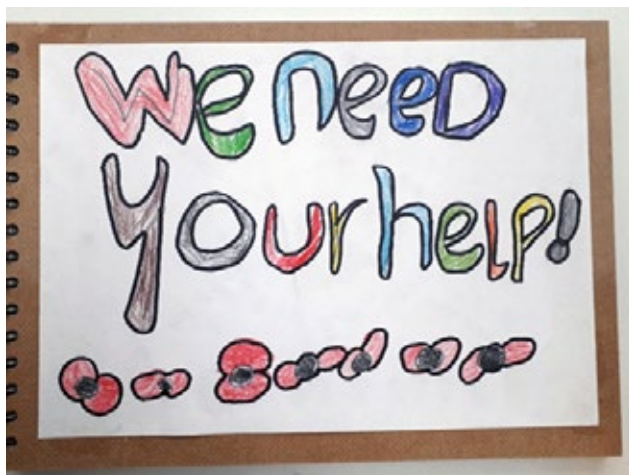 We need
Your help!